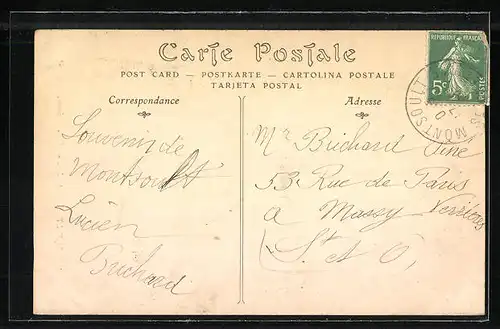 Carte Postale
POST CARD — POSTKARTE — CARTOLINA POSTALE
TARJETA POSTAL
Correspondance
Adresse
REPUBLIQUE FRANÇAISE
5c
POSTES
MONTSOULT
Souvenir de
Montsoult
Lucien
Buchard
Mr Buchard Ainé
53 Rue de Paris
a Massy
St et O,